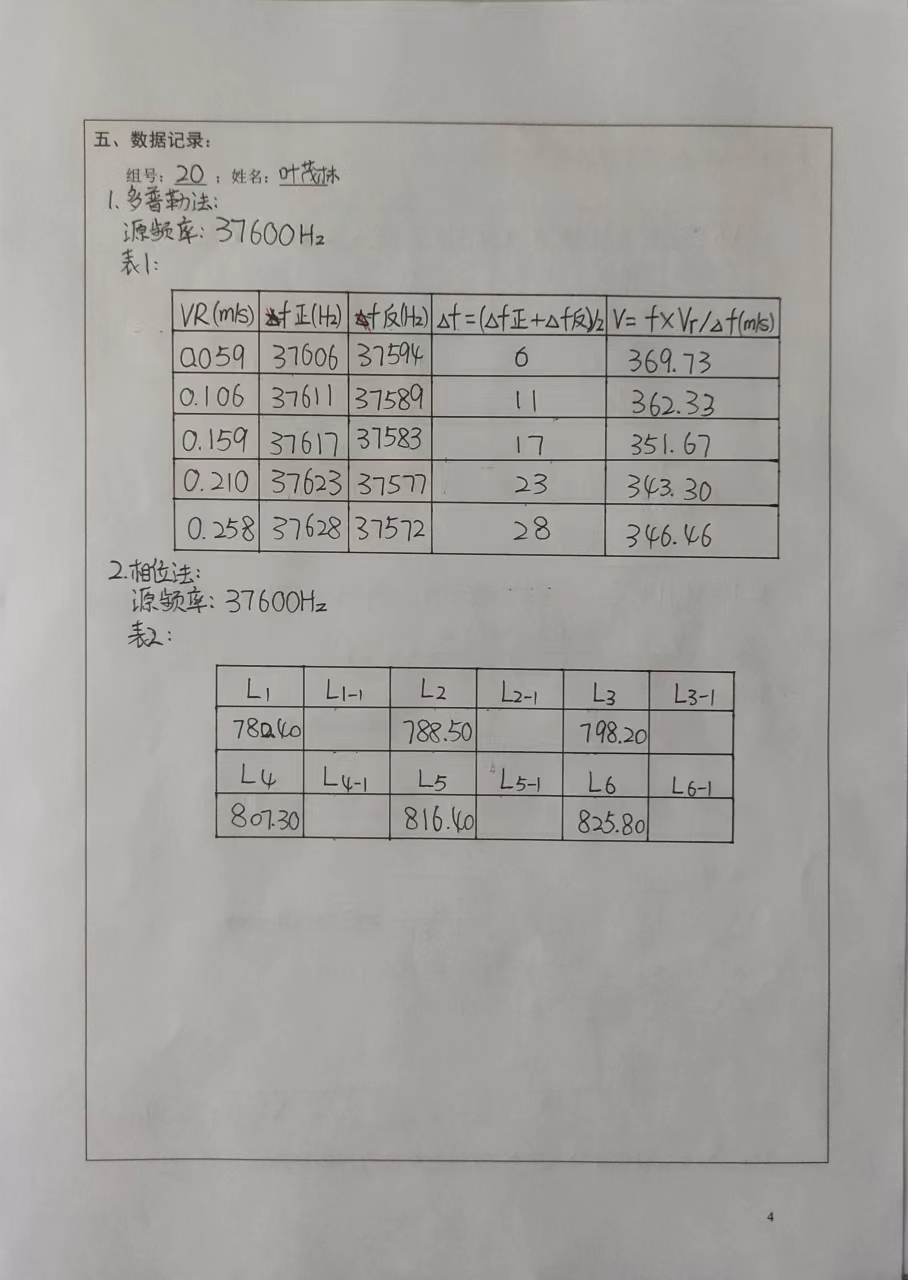 五、数据记录:
组号: 20 ; 姓名: 叶茂林
1.多普勒法:
源频率: 37600Hz
表1:
VR(m/s) f正(Hz) f反(Hz) Δf=(Δf正+Δf反)/2 V= f×Vr/Δf(m/s)
0.059 37606 37594 6 369.73
0.106 37611 37589 11 362.33
0.159 37617 37583 17 351.67
0.210 37623 37577 23 343.30
0.258 37628 37572 28 346.46
2.相位法:
源频率: 37600Hz
表2:
L1 L1-1 L2 L2-1 L3 L3-1
780.40 788.50 798.20
L4 L4-1 L5 L5-1 L6 L6-1
807.30 816.40 825.80
4